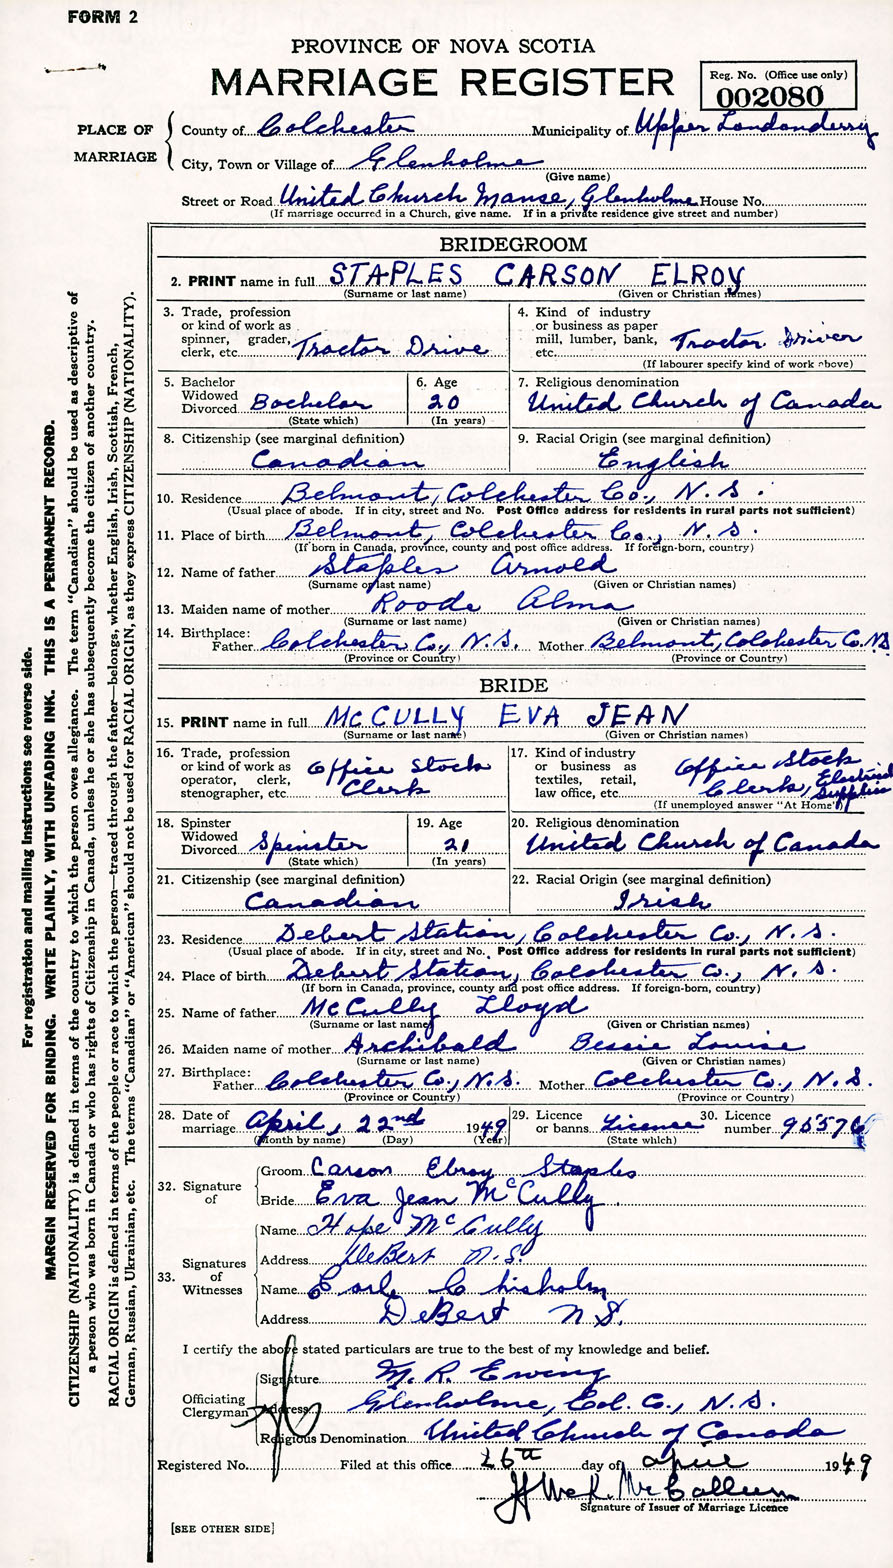 FORM 2
PROVINCE OF NOVA SCOTIA
MARRIAGE REGISTER
Reg. No. (Office use only)
002080
PLACE OF MARRIAGE
County of Colchester Municipality of Upper Londonderry
City, Town or Village of Glenholme
(Give name)
Street or Road United Church Manse, Glenholme House No.
(If marriage occurred in a Church, give name. If in a private residence give street and number)
BRIDEGROOM
2. PRINT name in full STAPLES CARSON ELROY
(Surname or last name) (Given or Christian names)
3. Trade, profession or kind of work as spinner, grader, clerk, etc. Tractor Drive
4. Kind of industry or business as paper mill, lumber, bank, etc. Tractor Driver
(If labourer specify kind of work above)
5. Bachelor Widowed Divorced Bachelor
(State which)
6. Age 20
(In years)
7. Religious denomination United Church of Canada
8. Citizenship (see marginal definition) Canadian
9. Racial Origin (see marginal definition) English
10. Residence Belmont, Colchester Co., N.S.
(Usual place of abode. If in city, street and No. Post Office address for residents in rural parts not sufficient)
11. Place of birth Belmont, Colchester Co., N.S.
(If born in Canada, province, county and post office address. If foreign-born, country)
12. Name of father Staples Arnold
(Surname or last name) (Given or Christian names)
13. Maiden name of mother Roode Alma
(Surname or last name) (Given or Christian names)
14. Birthplace: Father Colchester Co., N.S. Mother Belmont, Colchester Co. N.S.
(Province or Country) (Province or Country)
BRIDE
15. PRINT name in full McCULLY EVA JEAN
(Surname or last name) (Given or Christian names)
16. Trade, profession or kind of work as operator, clerk, stenographer, etc. Office Stock Clerk
17. Kind of industry or business as textiles, retail, law office, etc. Office Stock Clerk, Electrical Supplies
(If unemployed answer "At Home")
18. Spinster Widowed Divorced Spinster
(State which)
19. Age 21
(In years)
20. Religious denomination United Church of Canada
21. Citizenship (see marginal definition) Canadian
22. Racial Origin (see marginal definition) Irish
23. Residence Debert Station, Colchester Co., N.S.
(Usual place of abode. If in city, street and No. Post Office address for residents in rural parts not sufficient)
24. Place of birth Debert Station, Colchester Co., N.S.
(If born in Canada, province, county and post office address. If foreign-born, country)
25. Name of father McCully Lloyd
(Surname or last name) (Given or Christian names)
26. Maiden name of mother Archibald Bessie Louise
(Surname or last name) (Given or Christian names)
27. Birthplace: Father Colchester Co., N.S. Mother Colchester Co., N.S.
(Province or Country) (Province or Country)
28. Date of marriage April, 22nd 1949
(Month by name) (Day) (Year)
29. Licence or banns Licence
(State which)
30. Licence number 95576
32. Signature of
Groom Carson Elroy Staples
Bride Eva Jean McCully
33. Signatures of Witnesses
Name Hope McCully
Address DeBert N.S.
Name Earle Chisholm
Address DeBert N.S.
I certify the above stated particulars are true to the best of my knowledge and belief.
Officiating Clergyman
Signature M. R. Ewing
Address Glenholme, Col. Co., N.S.
Religious Denomination United Church of Canada
Registered No. Filed at this office 26th day of April 1949
McCallum
Signature of Issuer of Marriage Licence
[SEE OTHER SIDE]
For registration and mailing instructions see reverse side.
MARGIN RESERVED FOR BINDING. WRITE PLAINLY, WITH UNFADING INK. THIS IS A PERMANENT RECORD.
CITIZENSHIP (NATIONALITY) is defined in terms of the country to which the person owes allegiance. The term "Canadian" should be used as descriptive of
a person who was born in Canada or who has rights of Citizenship in Canada, unless he or she has subsequently become the citizen of another country.
RACIAL ORIGIN is defined in terms of the people or race to which the person—traced through the father—belongs, whether English, Irish, Scottish, French,
German, Russian, Ukrainian, etc. The terms "Canadian" or "American" should not be used for RACIAL ORIGIN, as they express CITIZENSHIP (NATIONALITY).